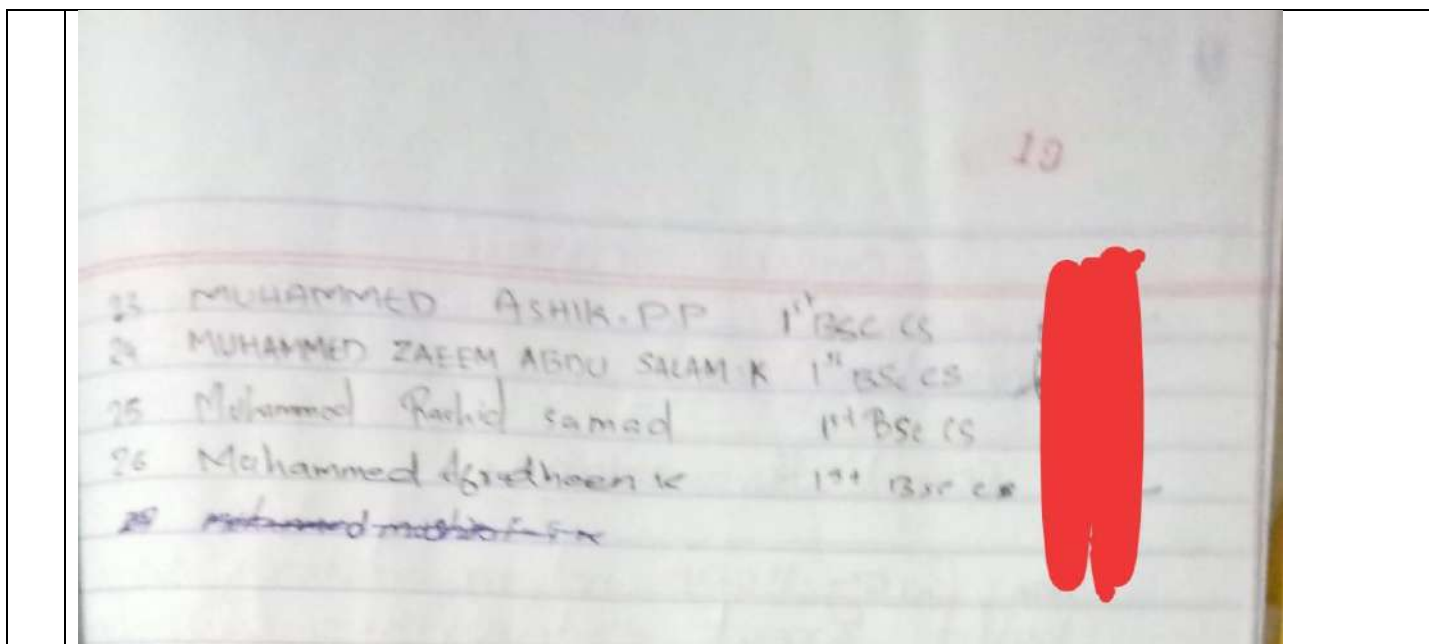 19
23 MUHAMMED ASHIK.PP 1st BSC CS
24 MUHAMMED ZAEEM ABDU SALAM K 1st BSc CS
25 Mohammed Rashid samad 1st BSc CS
26 Mohammed k 1st Bsc